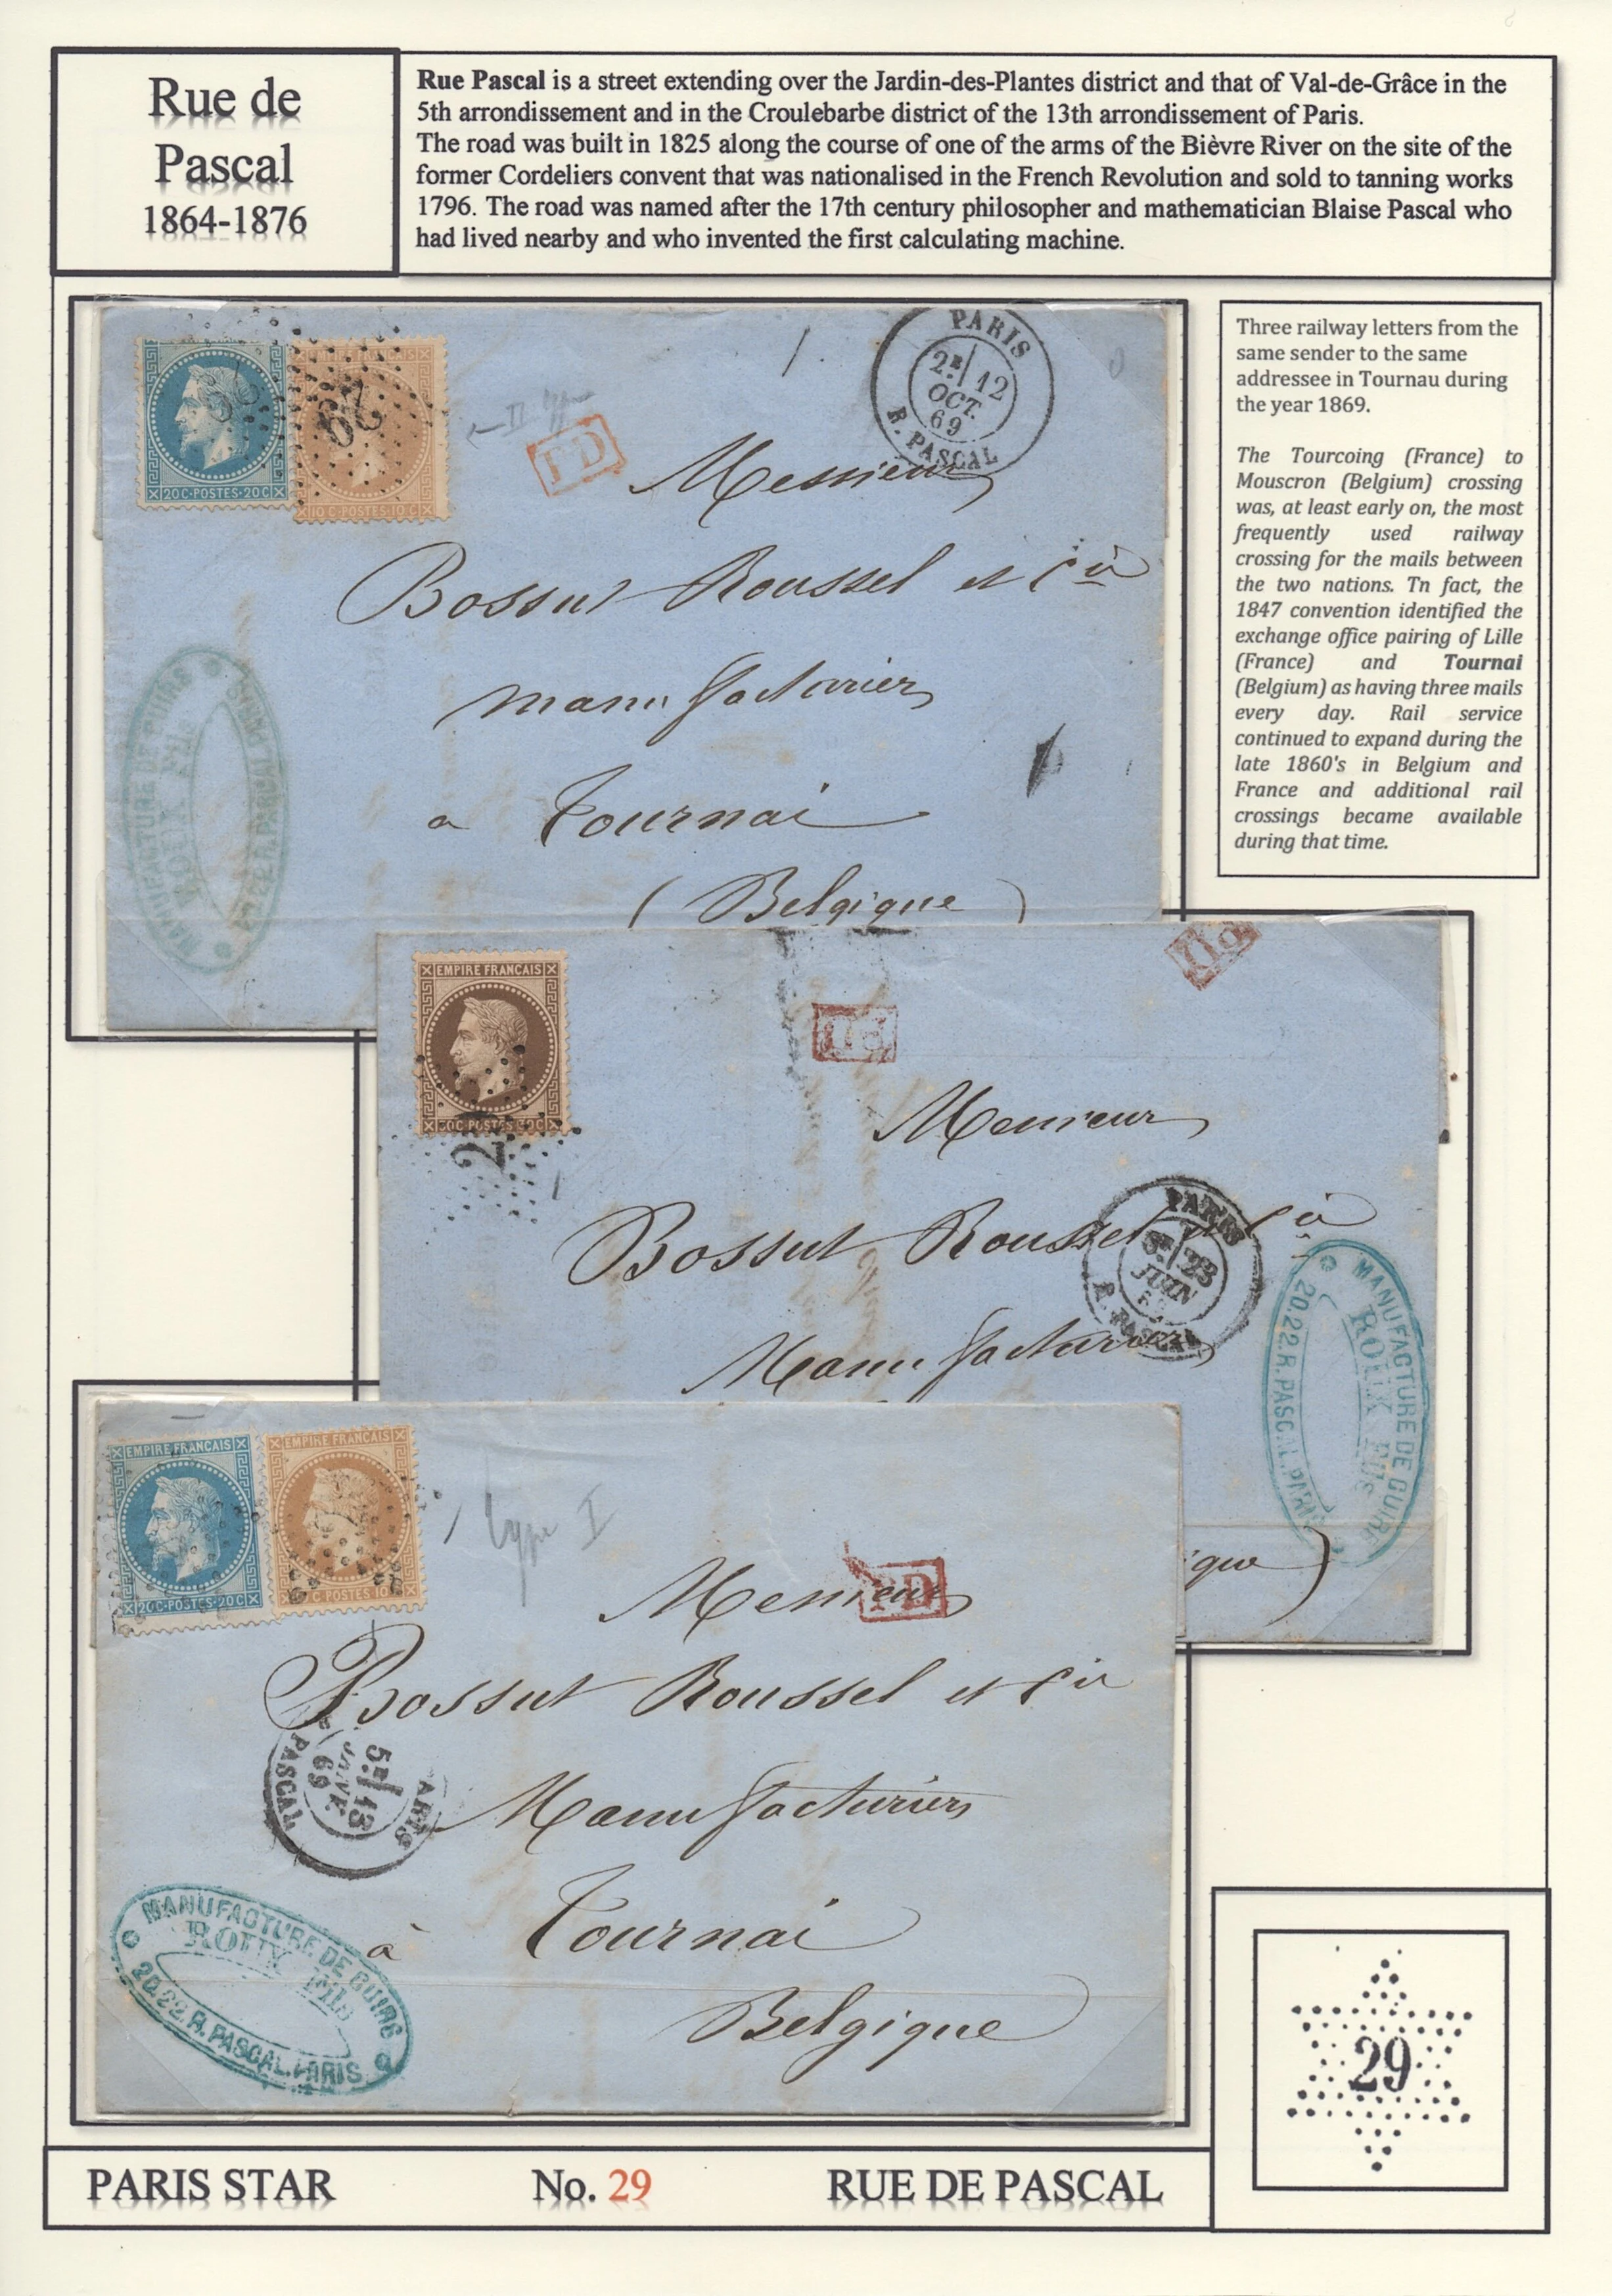 Rue de
Pascal
1864-1876
Rue Pascal is a street extending over the Jardin-des-Plantes district and that of Val-de-Grâce in the
5th arrondissement and in the Croulebarbe district of the 13th arrondissement of Paris.
The road was built in 1825 along the course of one of the arms of the Bièvre River on the site of the
former Cordeliers convent that was nationalised in the French Revolution and sold to tanning works
1796. The road was named after the 17th century philosopher and mathematician Blaise Pascal who
had lived nearby and who invented the first calculating machine.
Three railway letters from the
same sender to the same
addressee in Tournau during
the year 1869.
The Tourcoing (France) to
Mouscron (Belgium) crossing
was, at least early on, the most
frequently used railway
crossing for the mails between
the two nations. Tn fact, the
1847 convention identified the
exchange office pairing of Lille
(France) and Tournai
(Belgium) as having three mails
every day. Rail service
continued to expand during the
late 1860's in Belgium and
France and additional rail
crossings became available
during that time.
20C·POSTES·20C
10C·POSTES·10C
29
PD
PARIS
2E 12
OCT.
69
R. PASCAL
Messieurs
Bossut Roussel et Cie
manufacturiers
a Tournai
(Belgique)
MANUFACTURE DE CUIRS
ROUX Fils
20.22.R.PASCAL.PARIS
EMPIRE FRANCAIS
30C·POSTES·30C
PD
PD
Messieurs
Bossut Roussel et Cie
PARIS
23
JUIN
R. PASCAL
Manufacturiers
MANUFACTURE DE CUIRS
ROUX Fils
20.22.R.PASCAL.PARIS
ique)
EMPIRE FRANCAIS
20C·POSTES·20C
EMPIRE FRANCAIS
10C·POSTES·10C
type I
PD
Messieurs
Bossut Roussel et Cie
PARIS
5E 13
JANV.
69
R. PASCAL
Manufacturiers
à Tournai
Belgique
MANUFACTURE DE CUIRS
ROUX Fils
20.22.R.PASCAL.PARIS
29
PARIS STAR No. 29 RUE DE PASCAL